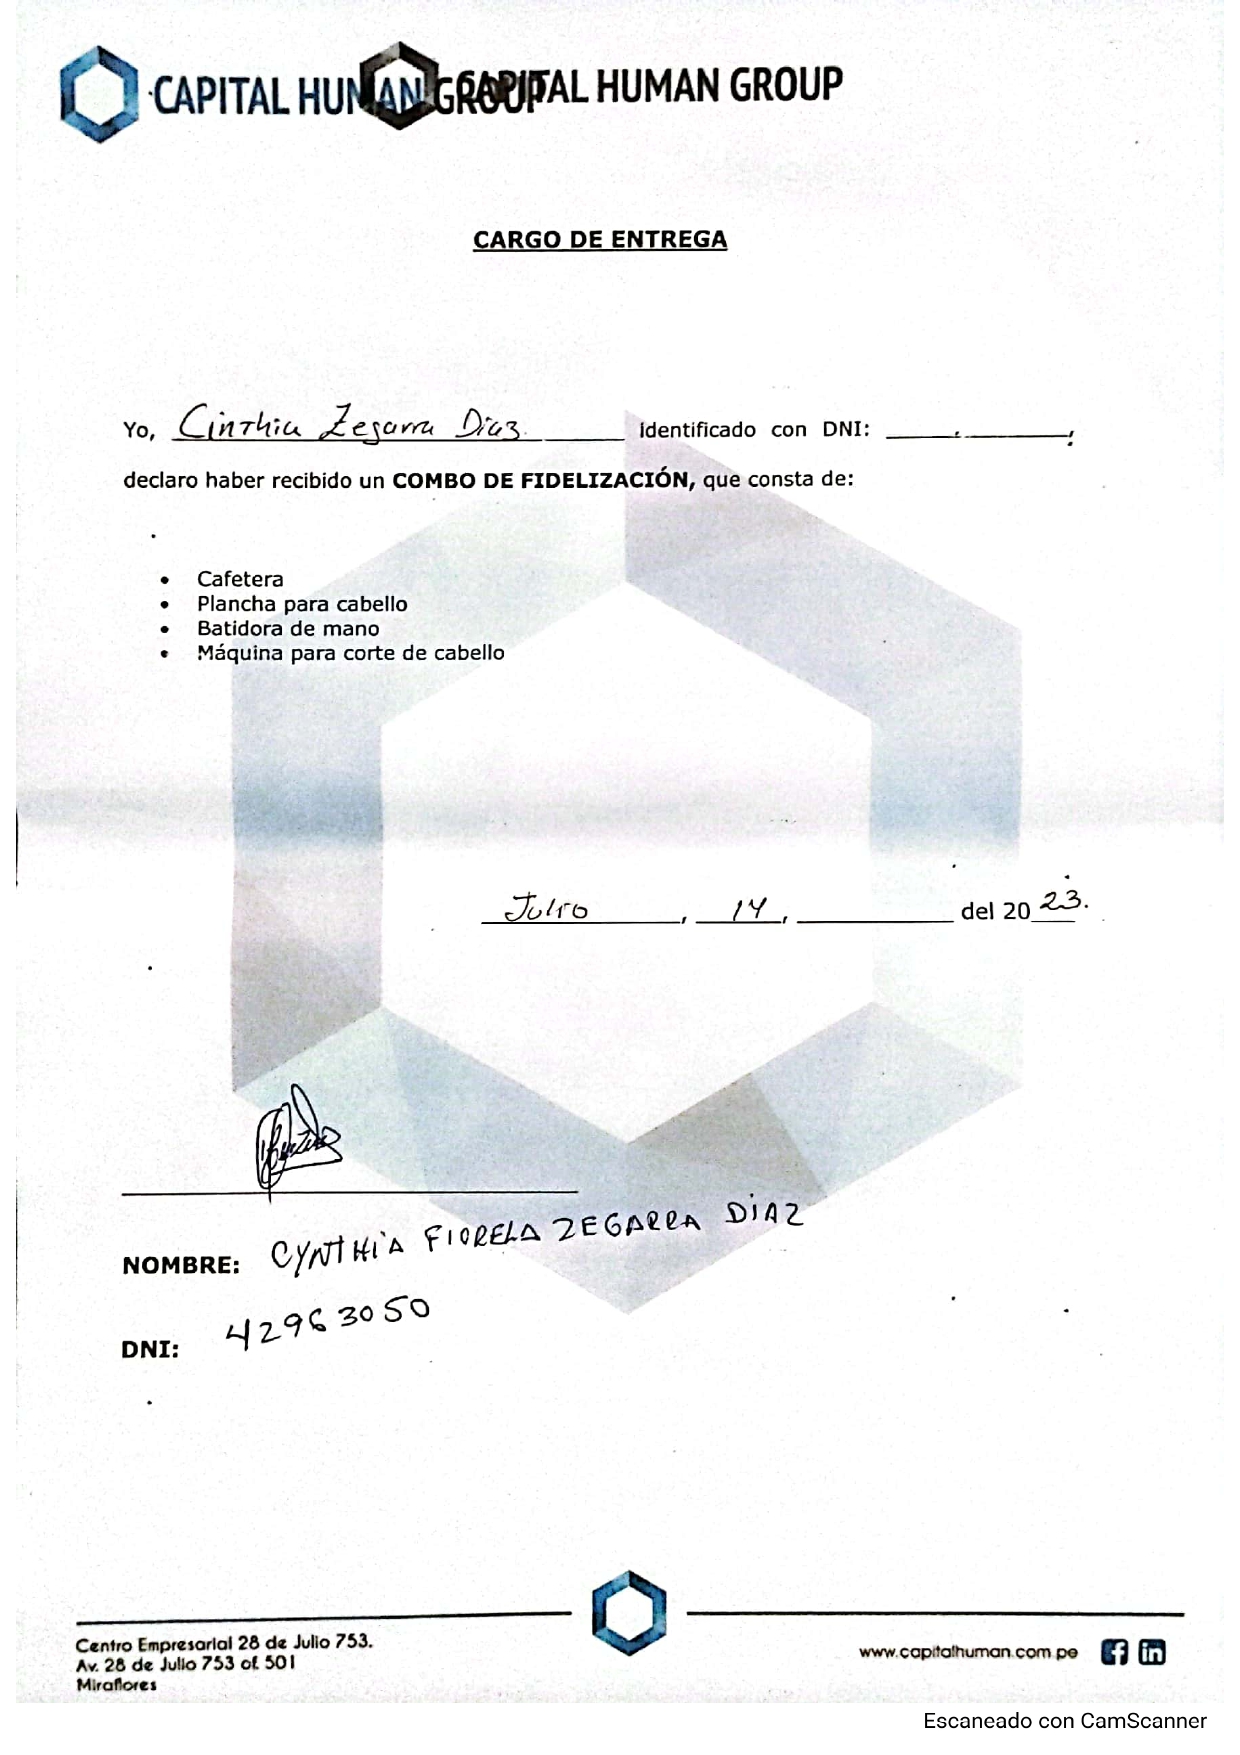 CAPITAL HUMAN GROUP CAPITAL HUMAN GROUP
CARGO DE ENTREGA
Yo, Cinthia Zegarra Diaz identificado con DNI: ________,
declaro haber recibido un COMBO DE FIDELIZACIÓN, que consta de:
• Cafetera
• Plancha para cabello
• Batidora de mano
• Máquina para corte de cabello
Julio, 14, ________ del 2023.
NOMBRE: CYNTHIA FIORELA ZEGARRA DIAZ
DNI: 42963050
Centro Empresarial 28 de Julio 753.
Av. 28 de Julio 753 of. 501
Miraflores
www.capitalhuman.com.pe
Escaneado con CamScanner